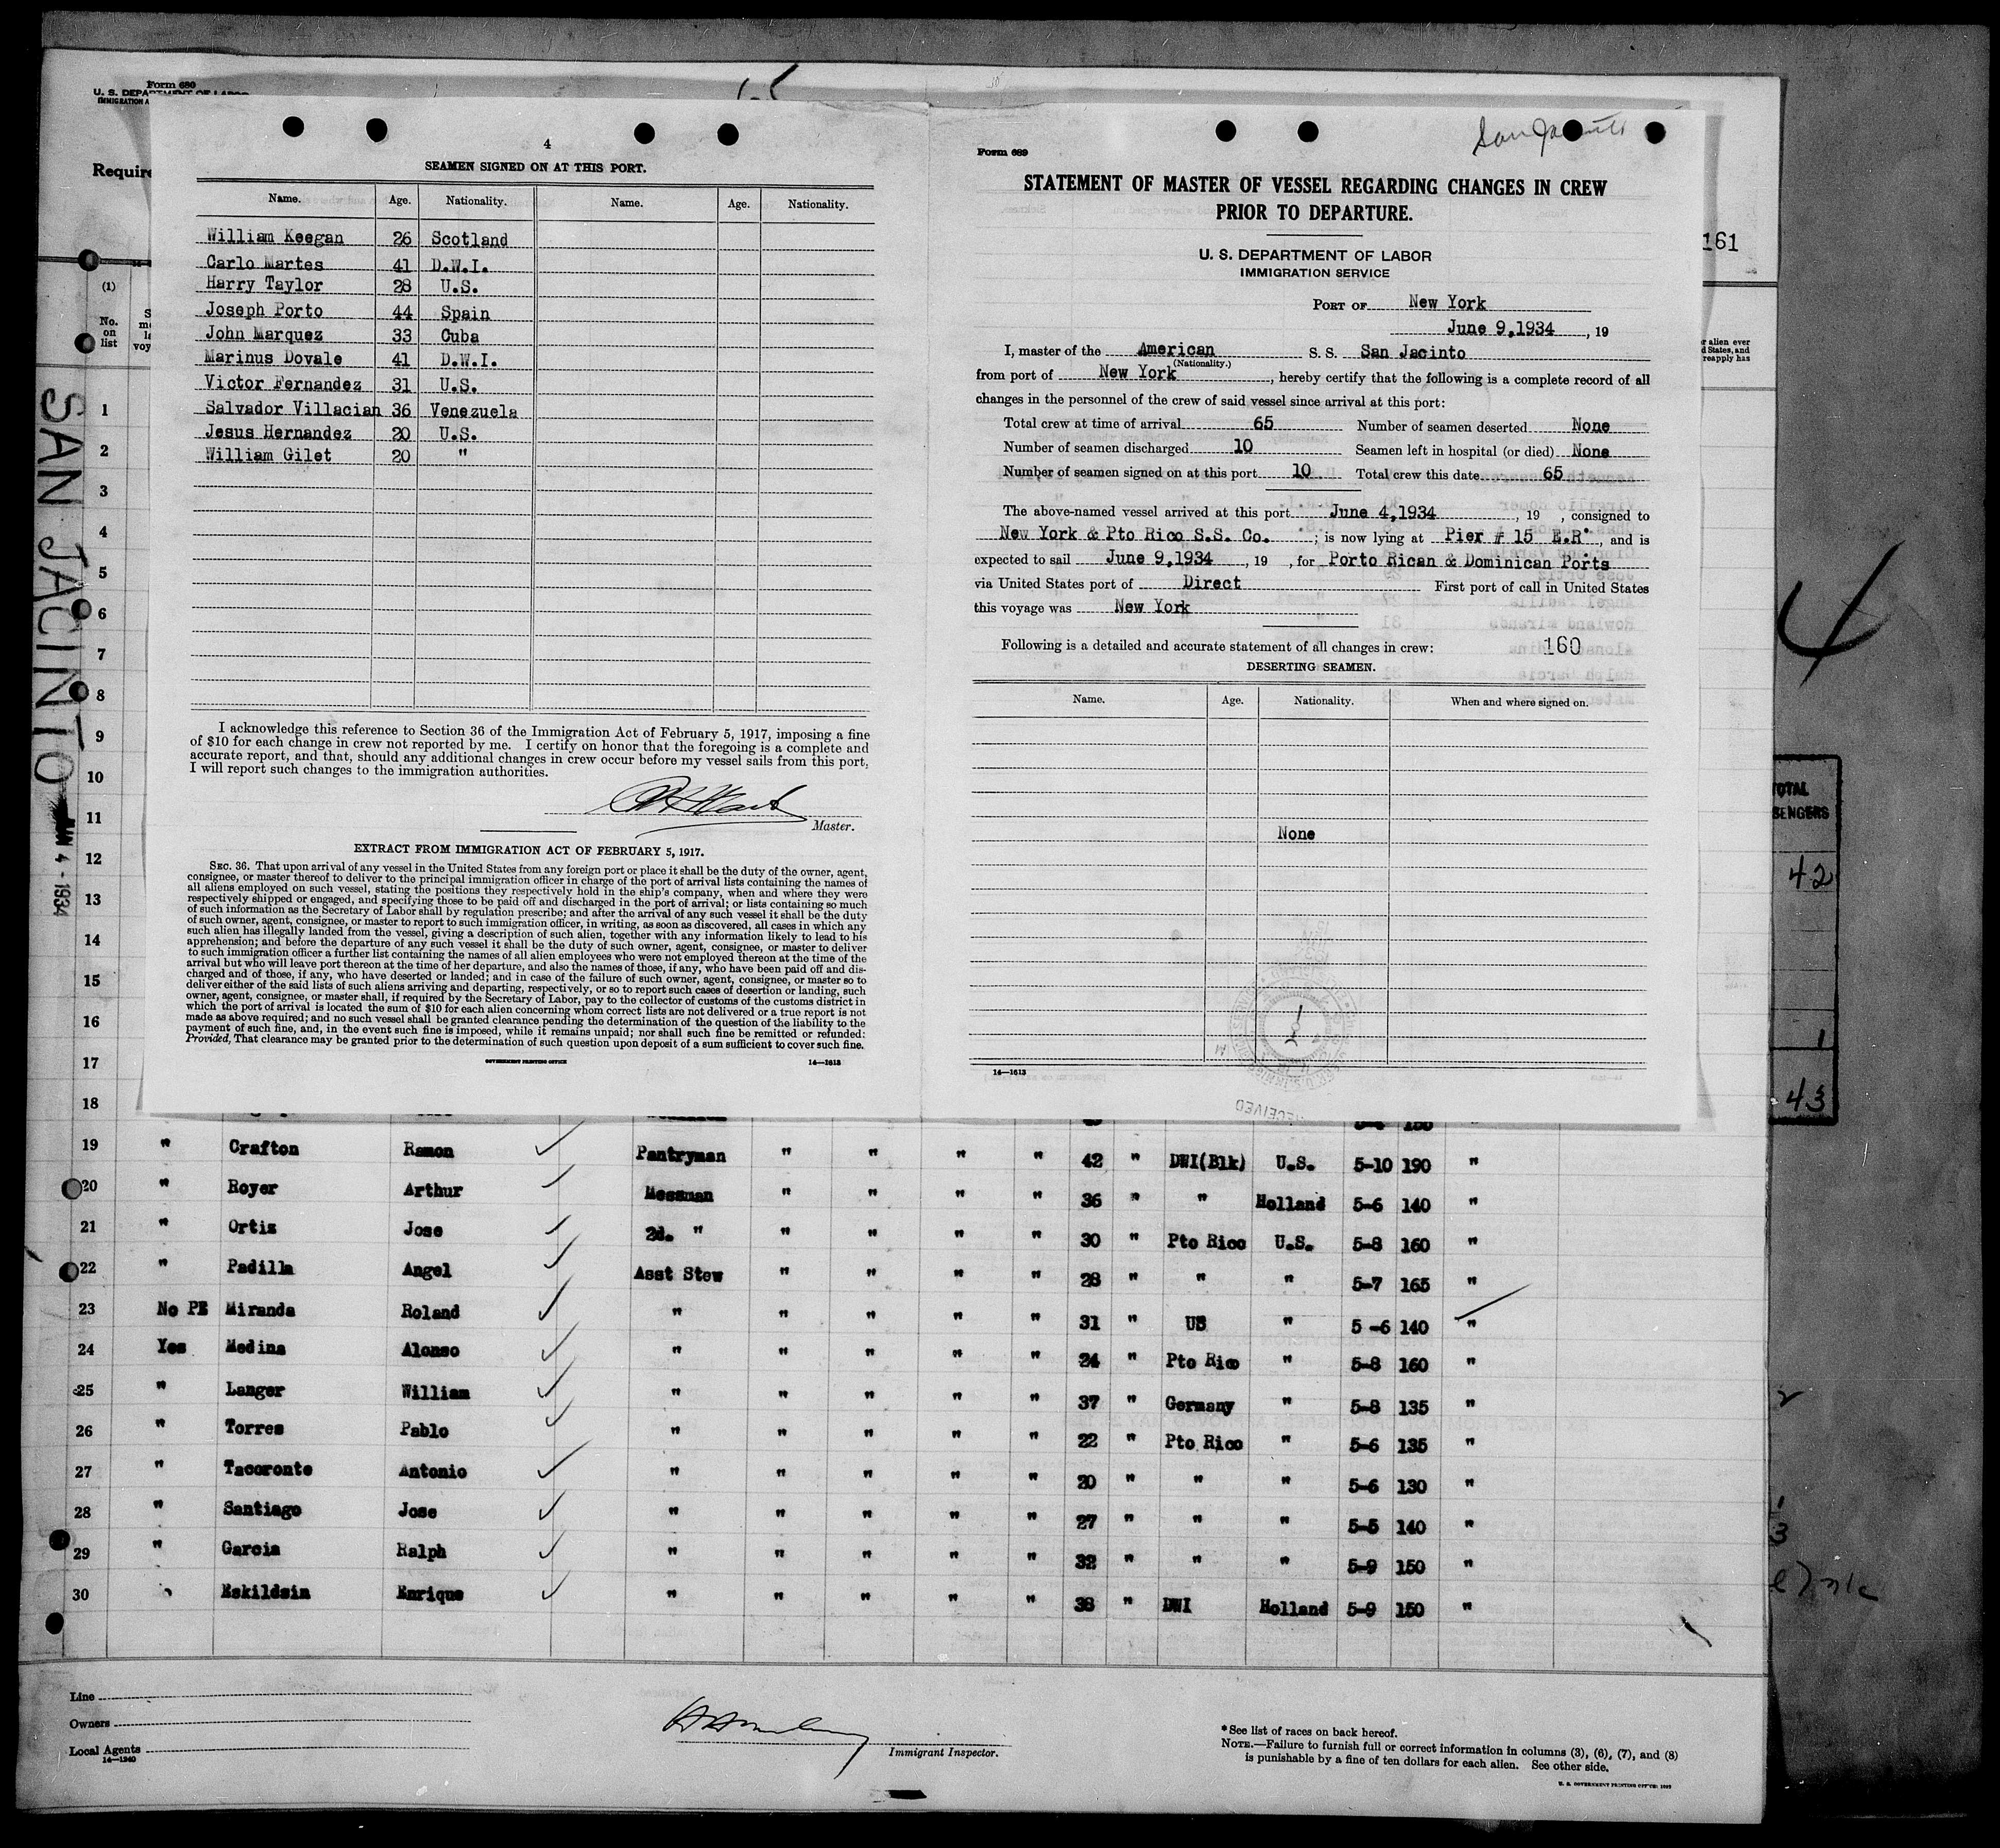 Form 680
U. S. DEPARTMENT OF LABOR
IMMIGRATION
Require
161
(1)
No. on list
SAN JACINTO
JUN 4 - 1934
4
SEAMEN SIGNED ON AT THIS PORT.
Name. Age. Nationality. Name. Age. Nationality.
William Keegan 26 Scotland
Carlo Martes 41 D.W.I.
Harry Taylor 28 U.S.
Joseph Porto 44 Spain
John Marquez 33 Cuba
Marinus Dovale 41 D.W.I.
Victor Fernandez 31 U.S.
Salvador Villacian 36 Venezuela
Jesus Hernandez 20 U.S.
William Gilet 20 "
I acknowledge this reference to Section 36 of the Immigration Act of February 5, 1917, imposing a fine
of $10 for each change in crew not reported by me. I certify on honor that the foregoing is a complete and
accurate report, and that, should any additional changes in crew occur before my vessel sails from this port,
I will report such changes to the immigration authorities.
Master.
EXTRACT FROM IMMIGRATION ACT OF FEBRUARY 5, 1917.
SEC. 36. That upon arrival of any vessel in the United States from any foreign port or place it shall be the duty of the owner, agent,
consignee, or master thereof to deliver to the principal immigration officer in charge of the port of arrival lists containing the names of
all aliens employed on such vessel, stating the positions they respectively hold in the ship's company, when and where they were
respectively shipped or engaged, and specifying those to be paid off and discharged in the port of arrival; or lists containing so much
of such information as the Secretary of Labor shall by regulation prescribe; and after the arrival of any such vessel it shall be the duty
of such owner, agent, consignee, or master to report to such immigration officer, in writing, as soon as discovered, all cases in which any
such alien has illegally landed from the vessel, giving a description of such alien, together with any information likely to lead to his
apprehension; and before the departure of any such vessel it shall be the duty of such owner, agent, consignee, or master to deliver
to such immigration officer a further list containing the names of all alien employees who were not employed thereon at the time of the
arrival but who will leave port thereon at the time of her departure, and also the names of those, if any, who have been paid off and dis-
charged and of those, if any, who have deserted or landed; and in case of the failure of such owner, agent, consignee, or master so to
deliver either of the said lists of such aliens arriving and departing, respectively, or so to report such cases of desertion or landing, such
owner, agent, consignee, or master shall, if required by the Secretary of Labor, pay to the collector of customs of the customs district in
which the port of arrival is located the sum of $10 for each alien concerning whom correct lists are not delivered or a true report is not
made as above required; and no such vessel shall be granted clearance pending the determination of the question of the liability to the
payment of such fine, and, in the event such fine is imposed, while it remains unpaid; nor shall such fine be remitted or refunded:
Provided, That clearance may be granted prior to the determination of such question upon deposit of a sum sufficient to cover such fine.
GOVERNMENT PRINTING OFFICE 14—1613
San Jacinto
Form 689
STATEMENT OF MASTER OF VESSEL REGARDING CHANGES IN CREW
PRIOR TO DEPARTURE.
U. S. DEPARTMENT OF LABOR
IMMIGRATION SERVICE
PORT OF New York
June 9,1934 , 19
I, master of the American S. S. San Jacinto
(Nationality.)
from port of New York , hereby certify that the following is a complete record of all
changes in the personnel of the crew of said vessel since arrival at this port:
Total crew at time of arrival 65 Number of seamen deserted None
Number of seamen discharged 10 Seamen left in hospital (or died) None
Number of seamen signed on at this port 10 Total crew this date 65
The above-named vessel arrived at this port June 4,1934 , 19 , consigned to
New York & Pto Rico S.S. Co. ; is now lying at Pier # 15 E.R. , and is
expected to sail June 9,1934 , 19 , for Porto Rican & Dominican Ports
via United States port of Direct First port of call in United States
this voyage was New York
Following is a detailed and accurate statement of all changes in crew: 160
DESERTING SEAMEN.
Name. Age. Nationality. When and where signed on.
None
14—1613
RECEIVED
TOTAL
42
1
43
4
1
2
3
4
5
6
7
8
9
10
11
12
13
14
15
16
17
18
19 " Crafton Ramon Pantryman " " " " 42 " DWI(Blk) U.S. 5-10 190 "
20 " Royer Arthur Messman " " " " 36 " " Holland 5-6 140 "
21 " Ortiz Jose 2d. " " " " " 30 " Pto Rico U.S. 5-8 160 "
22 " Padilla Angel Asst Stew " " " " 28 " " " 5-7 165 "
23 No PE Miranda Roland " " " " " 31 " US " 5-6 140 "
24 Yes Medina Alonso " " " " " 24 " Pto Rico " 5-8 160 "
25 " Langer William " " " " " 37 " Germany " 5-8 135 "
26 " Torres Pablo " " " " " 22 " Pto Rico " 5-6 135 "
27 " Tacoronte Antonio " " " " " 20 " " " 5-6 130 "
28 " Santiago Jose " " " " " 27 " " " 5-5 140 "
29 " Garcia Ralph " " " " " 32 " " " 5-9 150 "
30 " Eskildsin Enrique " " " " " 38 " DWI Holland 5-9 150 "
Line
Owners
Local Agents
14—1240
Immigrant Inspector.
*See list of races on back hereof.
NOTE.—Failure to furnish full or correct information in columns (3), (6), (7), and (8)
is punishable by a fine of ten dollars for each alien. See other side.
U. S. GOVERNMENT PRINTING OFFICE: